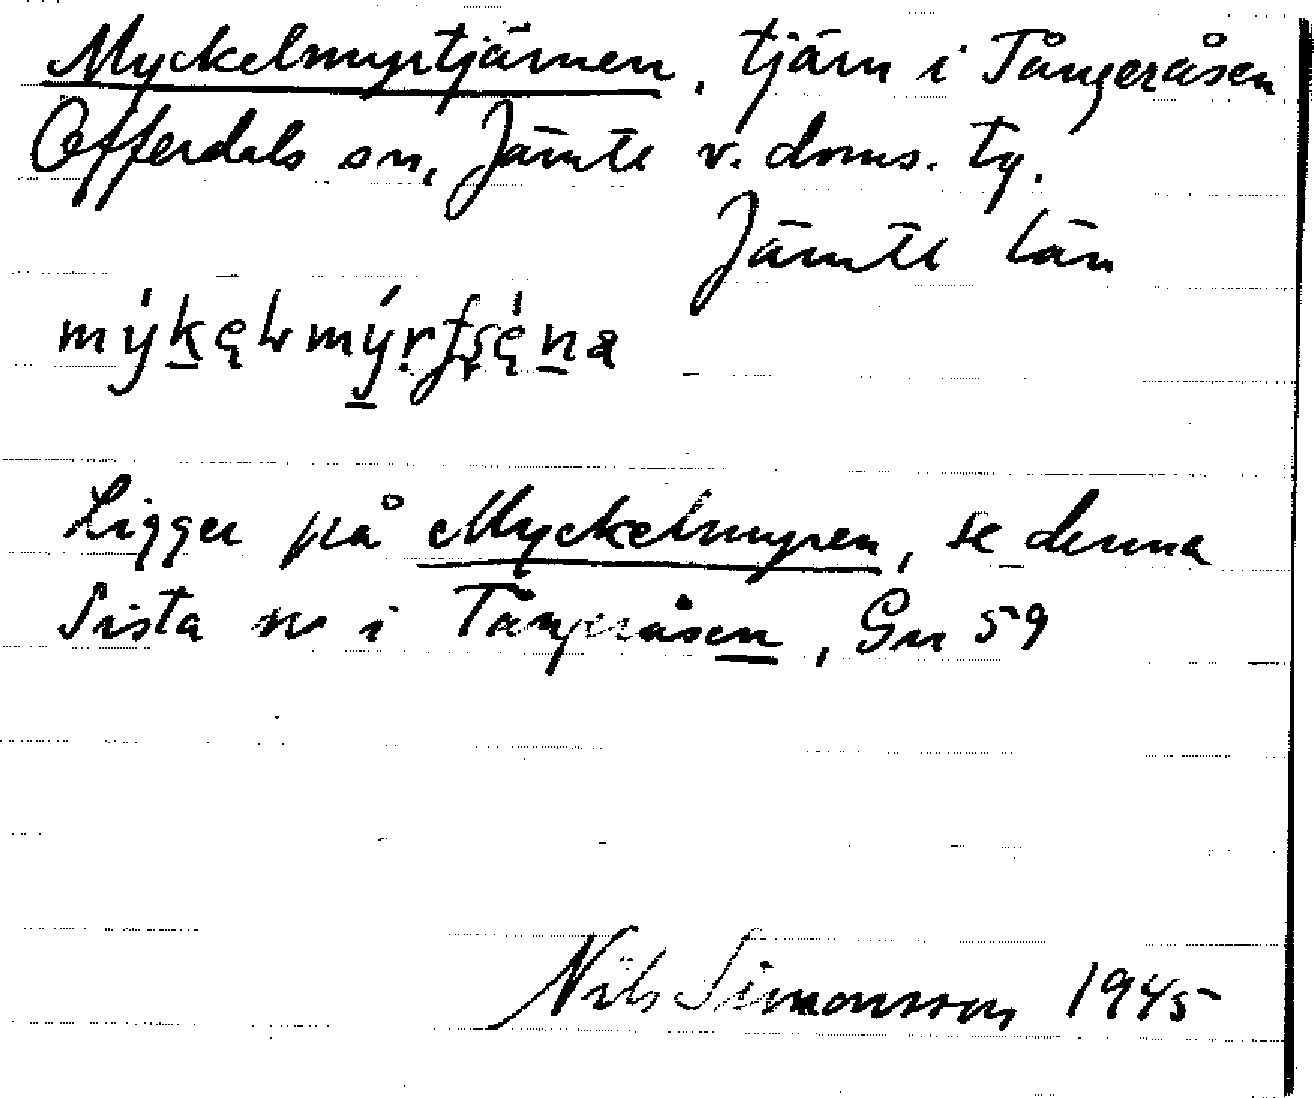 Myckelmyrtjärnen, tjärn i Tångeråsen
Offerdals sn, Jämtl v. doms. tg.
Jämtl län
Ligger på Myckelmyren, se denna
Sista nr i Tångeråsen, Gn 59
Nils Simonsson 1945